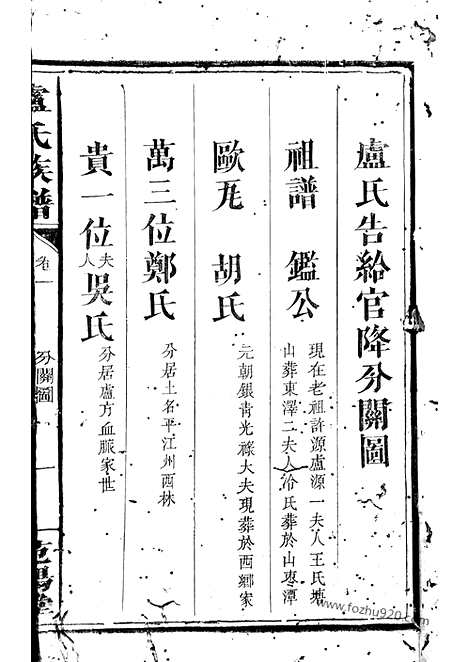 盧氏告給官降分關圖
祖譜 鑑公
現在老祖許源盧源一夫人王氏塘
山葬東澤二夫人冷氏葬於山枣潭
歐兀 胡氏
元朝銀青光祿大夫現葬於西鄉家
萬三位鄭氏
分居土名平江州西林
貴一位夫人吳氏
分居盧方血脈家世
盧氏族譜
卷一
分關圖
一
范陽堂
www.fozhu920.com